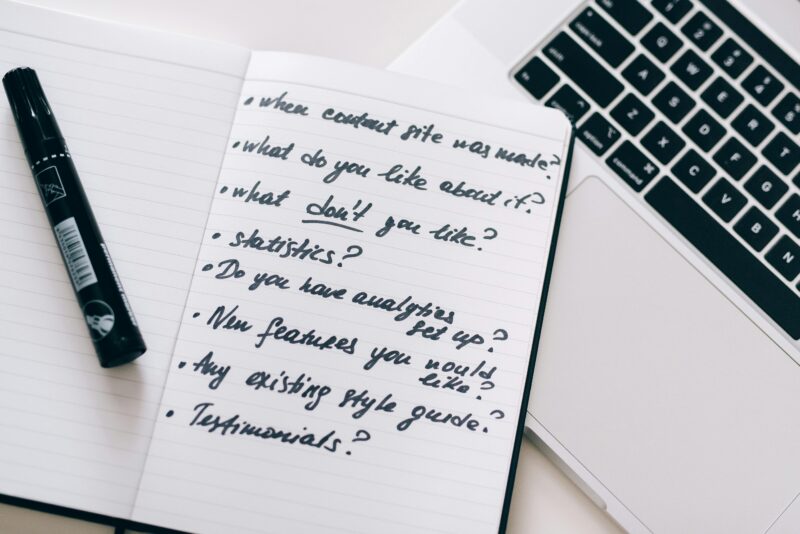 • when content site was made?
• what do you like about it?
• what don't you like?
• statistics?
• Do you have analytics
set up?
• New features you would
like?
• Any existing style guide?
• Testimonials?
caps lock
Q W
A S D F G H
Z X C V B
fn
option
command ⌘
E R T